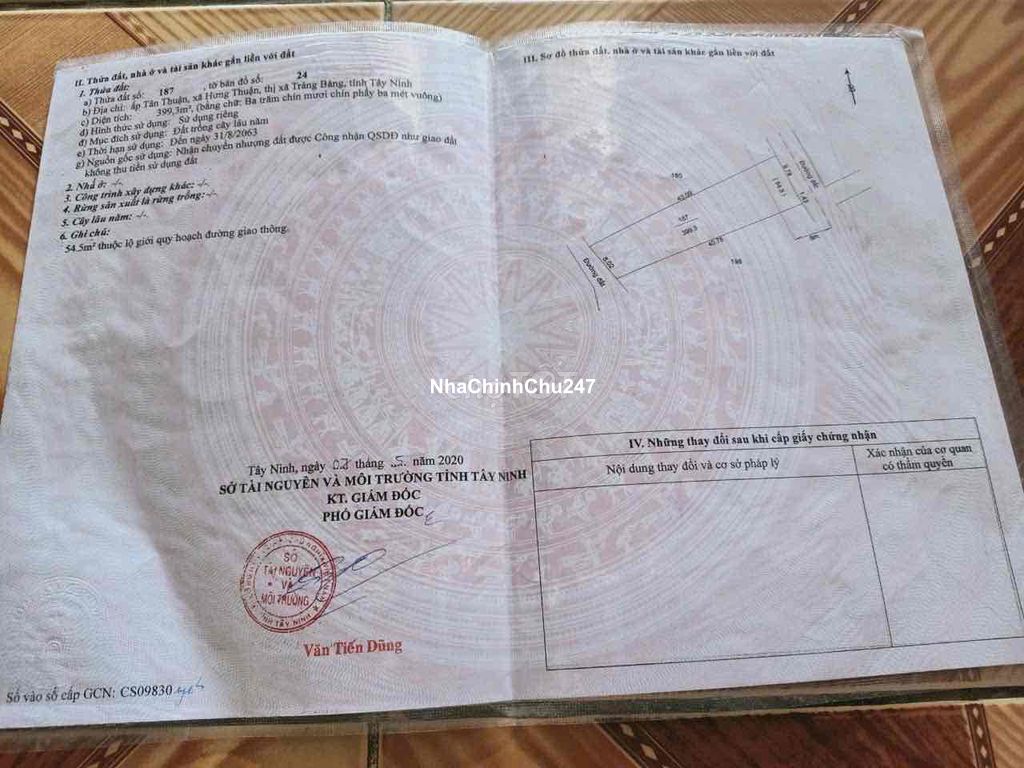 II. Thửa đất, nhà ở và tài sản khác gắn liền với đất
1. Thửa đất:
a) Thửa đất số: 187 , tờ bản đồ số: 24
b) Địa chỉ: ấp Tân Thuận, xã Hưng Thuận, thị xã Trảng Bàng, tỉnh Tây Ninh
c) Diện tích: 399,3m², (bằng chữ: Ba trăm chín mươi chín phẩy ba mét vuông)
d) Hình thức sử dụng: Sử dụng riêng
đ) Mục đích sử dụng: Đất trồng cây lâu năm
e) Thời hạn sử dụng: Đến ngày 31/8/2063
g) Nguồn gốc sử dụng: Nhận chuyển nhượng đất được Công nhận QSDĐ như giao đất
không thu tiền sử dụng đất
2. Nhà ở: -/-
3. Công trình xây dựng khác: -/-
4. Rừng sản xuất là rừng trồng: -/-
5. Cây lâu năm: -/-
6. Ghi chú:
54.5m² thuộc lộ giới quy hoạch đường giao thông.
Tây Ninh, ngày tháng năm 2020
SỞ TÀI NGUYÊN VÀ MÔI TRƯỜNG TỈNH TÂY NINH
KT. GIÁM ĐỐC
PHÓ GIÁM ĐỐC
SỞ
TÀI NGUYÊN
VÀ
MÔI TRƯỜNG
TỈNH TÂY NINH
Văn Tiến Dũng
Số vào sổ cấp GCN: CS09830
III. Sơ đồ thửa đất, nhà ở và tài sản khác gắn liền với đất
Đường đất
9.78
(54.5)
1.43
180
43.09
187
399.3
40.76
198
8.02
Đường đất
NhaChinhChu247
IV. Những thay đổi sau khi cấp giấy chứng nhận
Nội dung thay đổi và cơ sở pháp lý
Xác nhận của cơ quan
có thẩm quyền